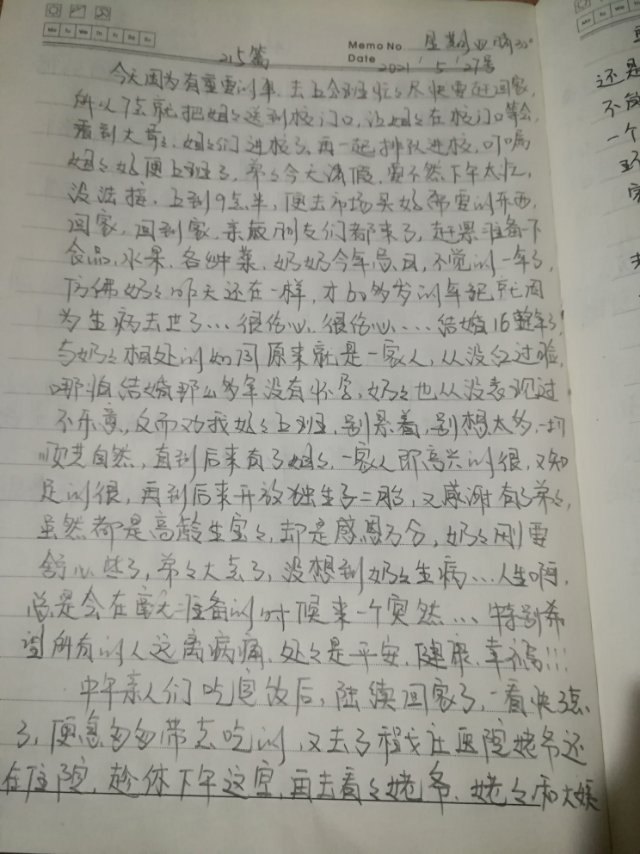 Mo Tu We Th Fr Sa Su
Memo No 星期四 晴30°
215篇
Date 2021 5 27号
今天因为有重要的事,去上个班忙么尽快要赶回家,
所以7点就把姐々送到校门口,让姐々在校门口等会,
看到大哥々、姐々们进校了,再一起排队进校,叮嘱
姐々好便上班了,弟々今天请假,要不然下午太忙,
没法接,上到9点半,便去市场买好需要的东西,
回家,回到家,亲戚朋友们都来了,赶紧准备下
食品,水果,各种菜,奶奶今年忌日,不觉的一年了,
仿佛奶々昨天还在一样,才60多岁的年纪就因
为生病去世了…很伤心,很伤心…结婚16整年了,
与奶々相处的如同原来就是一家人,从没红过脸,
哪怕结婚那么多年没有怀孕,奶々也从没表现过
不乐意,反而劝我好々上班,别累着,别想太多,一切
顺其自然,直到后来有了姐々,一家人都高兴的很,又知
足的很,再到后来开放独生子二胎,又感谢有了弟々,
虽然都是高龄生宝々,却是感恩万分,奶々刚要
舒心些了,弟々大点了,没想到奶々生病…人生啊,
总是会在毫无准备的时候来一个突然…特别希
望所有的人远离病痛,处々是平安、健康、幸福!!!
中午亲人们吃完饭后,陆续回家了,一看快3点
了,便急匆匆带点吃的,又去了 医院姥爷还
在住院,趁休下午这空,再去看々姥爷、姥々和大姨
还是
不
一个